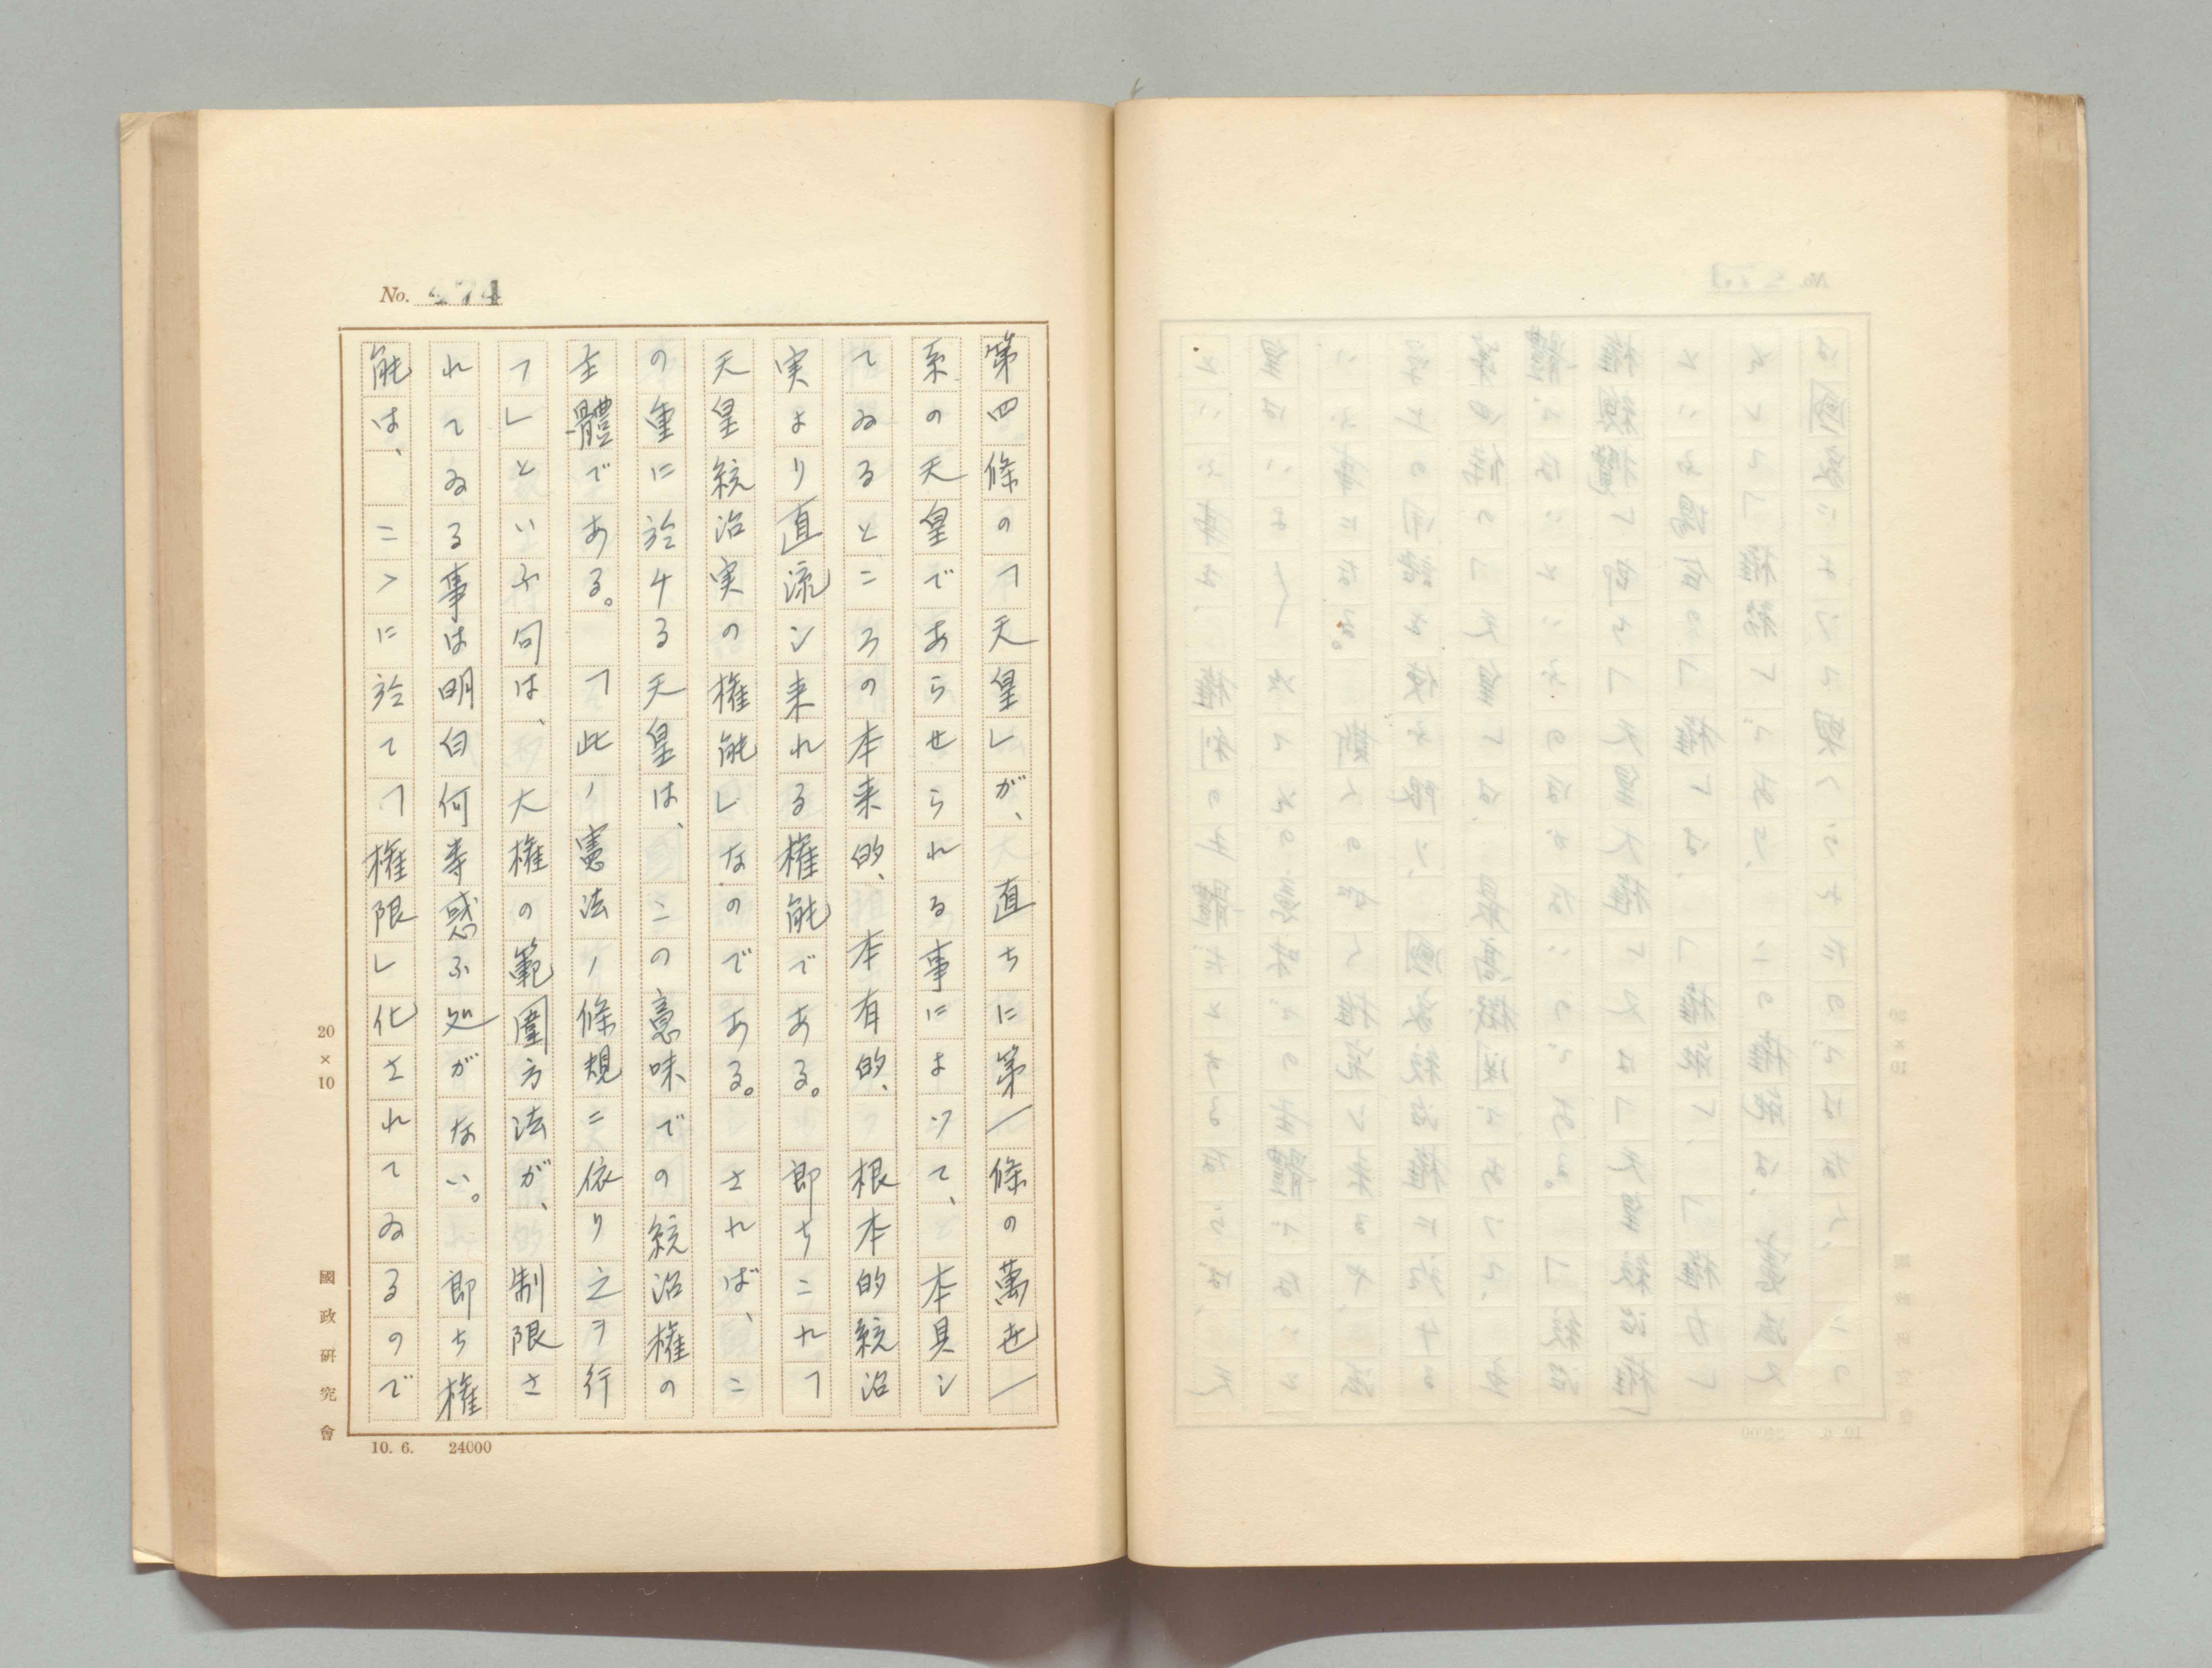 No. 474
第四條の「天皇」が、直ちに第一條の萬世一
系の天皇であらせられる事によつて、本具シ
てゐるところの本来的、本有的、根本的統治
実より直流シ来れる權能である。即ちこれ「
天皇統治実の權能」なのである。されば、こ
の重に於ケる天皇は、この意味での統治權の
主體である。「此ノ憲法ノ條規ニ依リ之ヲ行
フ」といふ句は、大權の範圍方法が、制限さ
れてゐる事は明白何等惑ふ処がない。即ち權
能は、こゝに於て「權限」化されてゐるので
20×10
國政研究會
10. 6. 24000